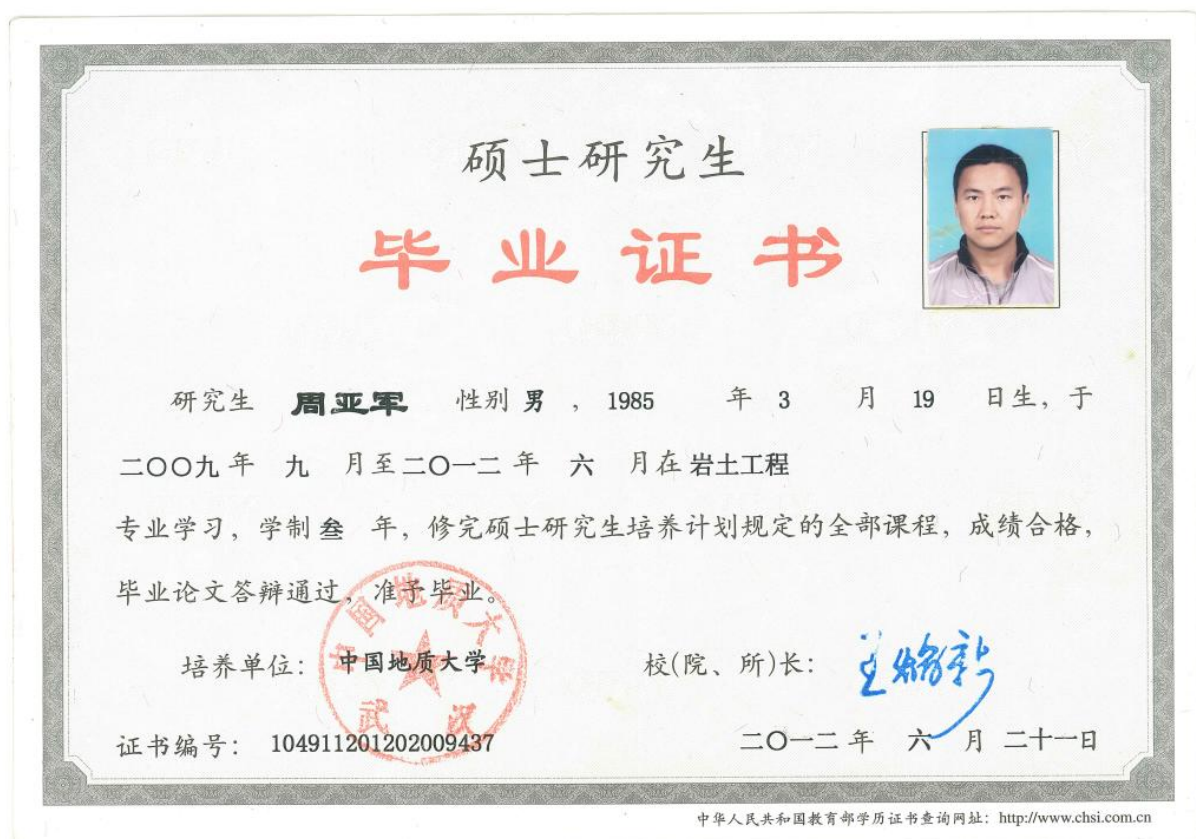 硕士研究生
毕业证书
研究生 周亚军 性别 男 ， 1985 年 3 月 19 日生，于
二〇〇九 年 九 月至 二〇一二 年 六 月在 岩土工程
专业学习，学制 叁 年，修完硕士研究生培养计划规定的全部课程，成绩合格，
毕业论文答辩通过，准予毕业。
中国地质大学
武汉
培养单位： 中国地质大学 校(院、所)长：
证书编号： 104911201202009437 二〇一二 年 六 月 二十一日
中华人民共和国教育部学历证书查询网址：http://www.chsi.com.cn